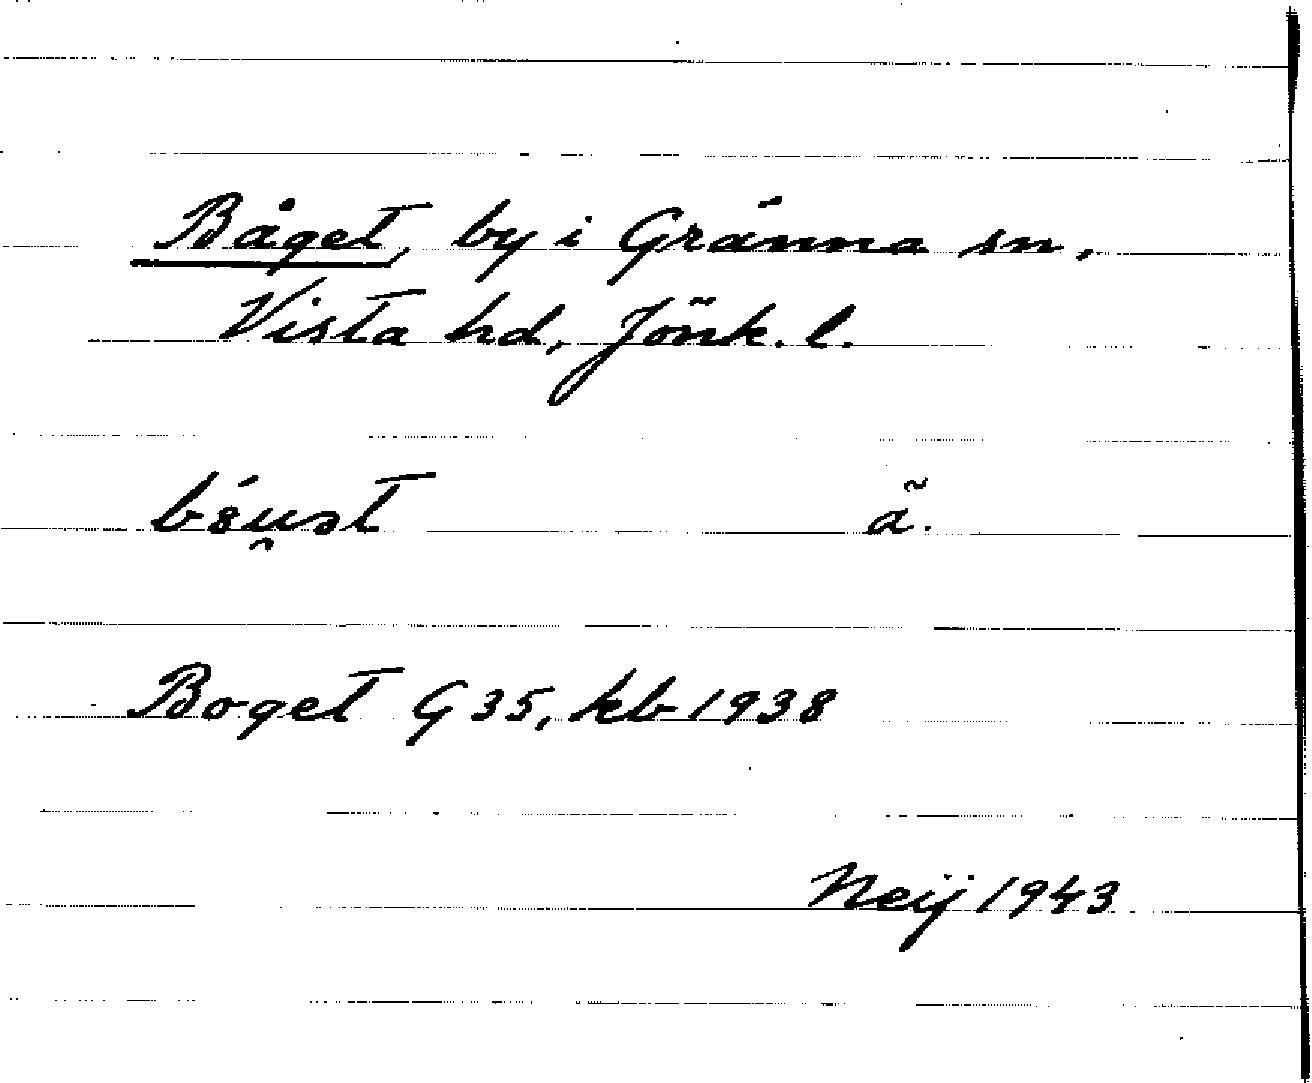 Båget, by i Gränna sn,
Vista hd, Jönk. l.
ã.
Boget G 35, kb 1938
Neij 1943